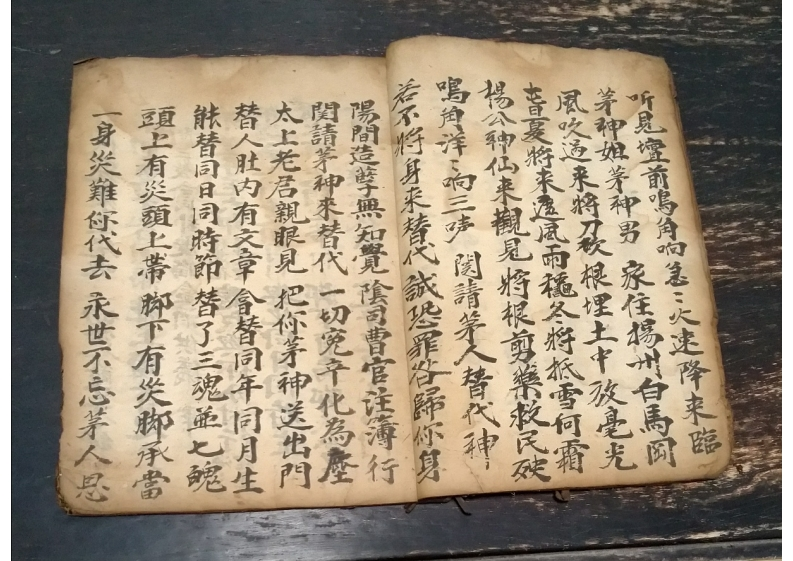 听見壇前鳴角响急〻火速降来臨
茅神姐茅神男 家住揚州白馬岡
風吹過来將刀砍根埋土中放毫光
春夏將来遮風雨秋冬將抵雪何霜
楊公神仙来觀見將根剪藥救民殃
鳴角洋〻响三声 関請茅人替代神〻
若不將身来替代誠恐罪咎歸你身
陽間造孽無知覺陰司曹官註簿行
関請茅神來替代一切冤辛化為塵
太上老君親眼見把你茅神送出門
替人肚内有文章會替同年同月生
能替同日同時節替了三魂並七魄
頭上有災頭上帶脚下有災脚承當
一身災難你代去永世不忘茅人恩